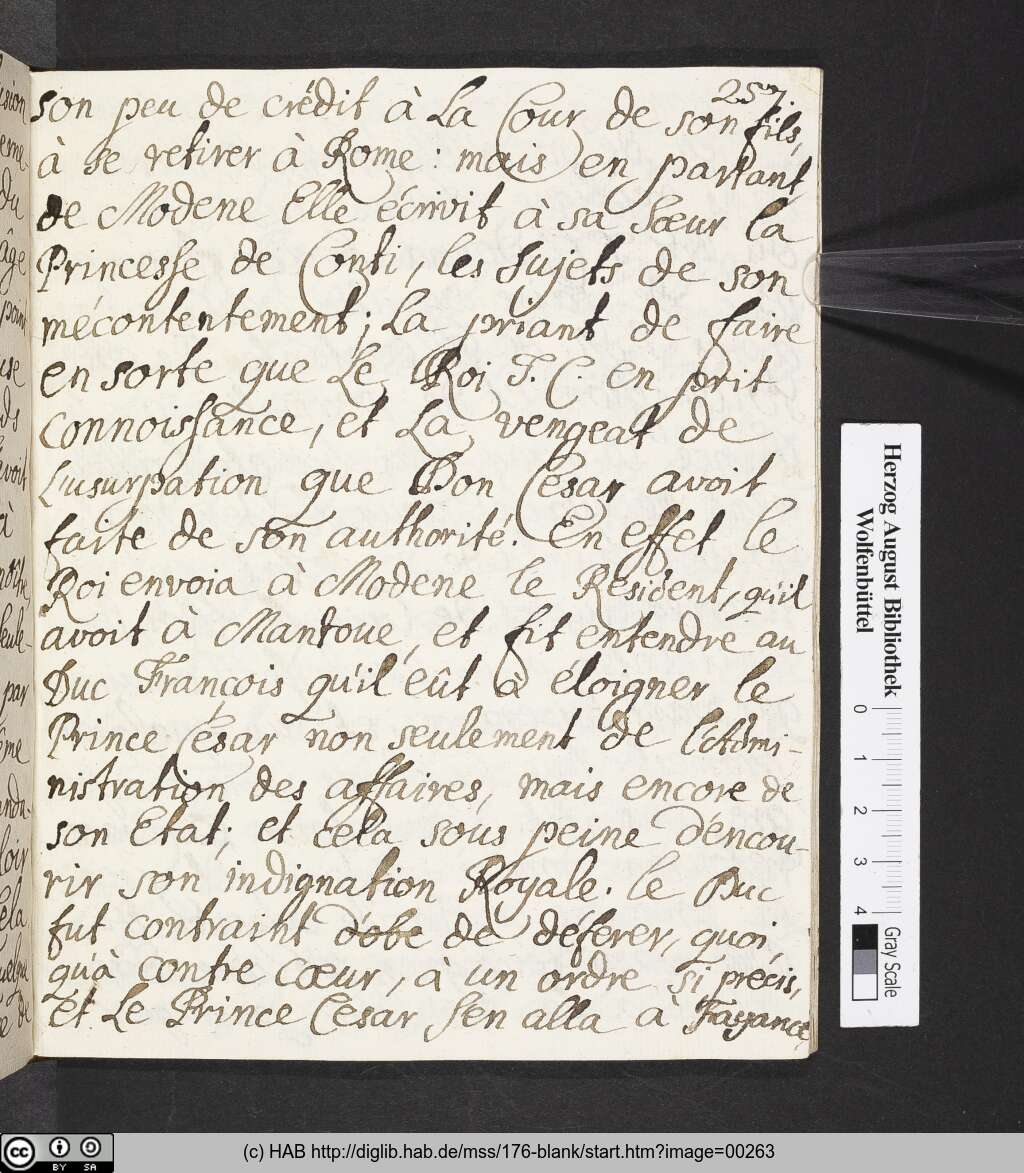 257.
son peu de crédit à La Cour de son fils,
à se retirer à Rome : mais en partant
de Modene Elle écrivit à sa sœur la
Princesse de Conti, les sujets de son
mécontentement; La priant de faire
en sorte que Le Roi T. C. en prit
connoissance, et La vengeat de
L'usurpation que Don César avoit
faite de son authorité. En effet le
Roi envoia à Modene le Resident, qu'il
avoit à Mantoue, et fit entendre au
Duc François qu'il eût à éloigner le
Prince César non seulement de l'Admi-
nistration des affaires, mais encore de
son Etat; et cela sous peine d'encou-
rir son indignation Royale. le Duc
fut contraint d'obe de déferer, quoi
qu'à contre cœur, à un ordre si précis,
et Le Prince Cesar s'en alla à Fayance,
sion
erne
du
âge
poin
use
ds
avoit
à
seule-
par
loir
cela
de
Herzog August Bibliothek
Wolfenbüttel
0 1 2 3 4
Gray Scale
cc BY SA
(c) HAB http://diglib.hab.de/mss/176-blank/start.htm?image=00263